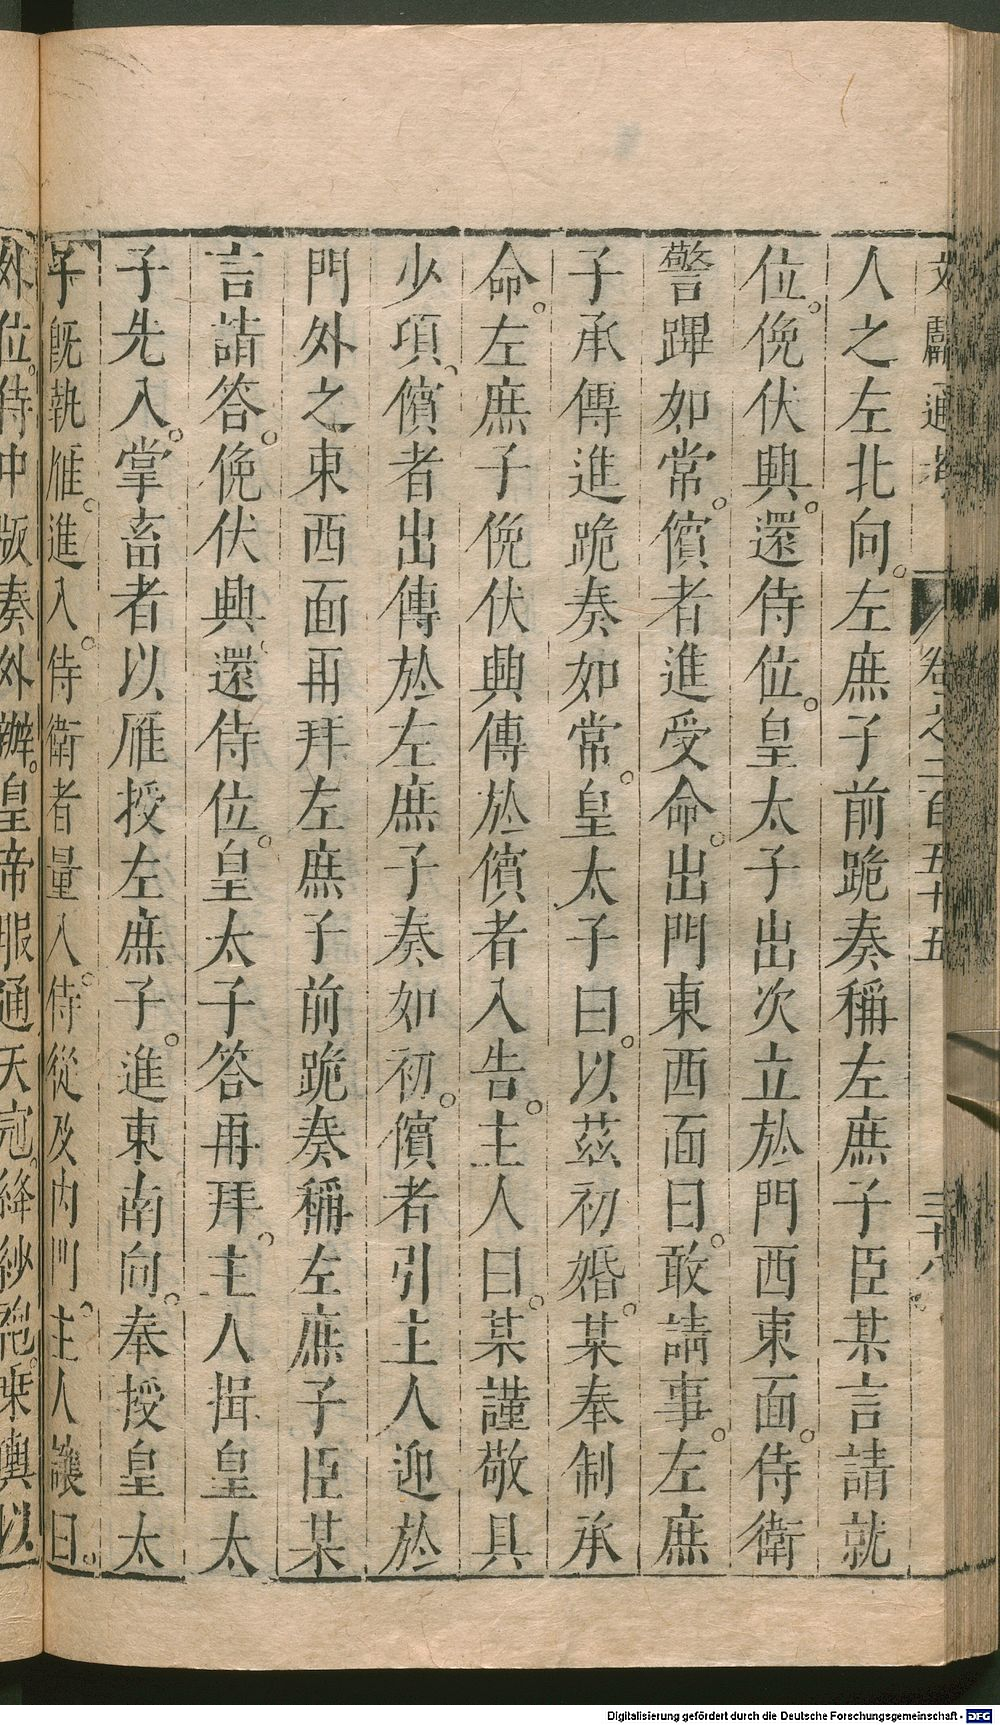 文獻通考 卷之二百五十五 三十八
人之左北向。左庶子前跪奏稱左庶子臣某言請就
位。俛伏興。還侍位。皇太子出次立於門西東面。侍衛
警蹕如常。儐者進受命。出門東西面曰。敢請事。左庶
子承傳進跪奏如常。皇太子曰。以茲初婚。某奉制承
命。左庶子俛伏興傳於儐者入告。主人曰。某謹敬具
少項。儐者出傳於左庶子奏如初。儐者引主人迎於
門外之東西面再拜左庶子前跪奏稱左庶子臣某
言請答。俛伏興。還侍位。皇太子答再拜。主人揖皇太
子先入。掌畜者以雁授左庶子。進東南向。奉授皇太
子既執雁。進入。侍衛者量入。侍從及內門。主人讓曰。
外位。侍中版奏外辦。皇帝服通天冠。絳紗袍。乘輿以
Digitalisierung gefördert durch die Deutsche Forschungsgemeinschaft - DFG